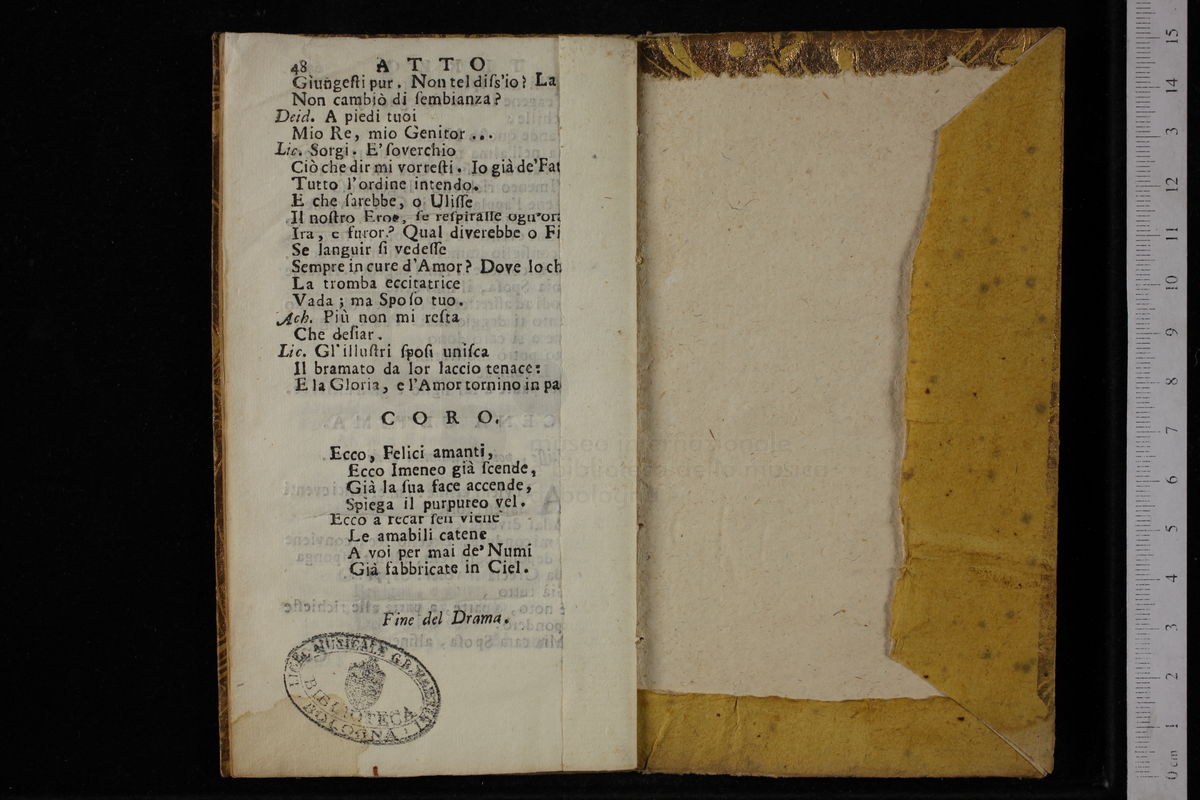 48 ATTO
Giungesti pur. Non tel diſs'io? La
Non cambiò di ſembianza?
Deid. A piedi tuoi
Mio Re, mio Genitor...
Lic. Sorgi. E' ſoverchio
Ciò che dir mi vorreſti. Io già de' Fat
Tutto l'ordine intendo.
E che ſarebbe, o Uliſſe
Il noſtro Eroe, ſe reſpiraſſe ogn'or
Ira, e furor? Qual diverebbe o Fi
Se languir ſi vedeſſe
Sempre in cure d'Amor? Dove lo ch
La tromba eccitatrice
Vada; ma Spoſo tuo.
Ach. Più non mi reſta
Che deſiar.
Lic. Gl'illuſtri ſpoſi uniſca
Il bramato da lor laccio tenace:
E la Gloria, e l'Amor tornino in pa
CORO.
Ecco, Felici amanti,
Ecco Imeneo già ſcende,
Già la ſua face accende,
Spiega il purpureo vel.
Ecco a recar ſen viene
Le amabili catene
A voi per mai de' Numi
Già fabbricate in Ciel.
Fine del Drama.
MUSICALE
BIBLIOTECA
BOLOGNA
museo internazionale
biblioteca della musica
15
14
3
12
11
10
9
8
7
6
5
4
3
2
1
0 cm